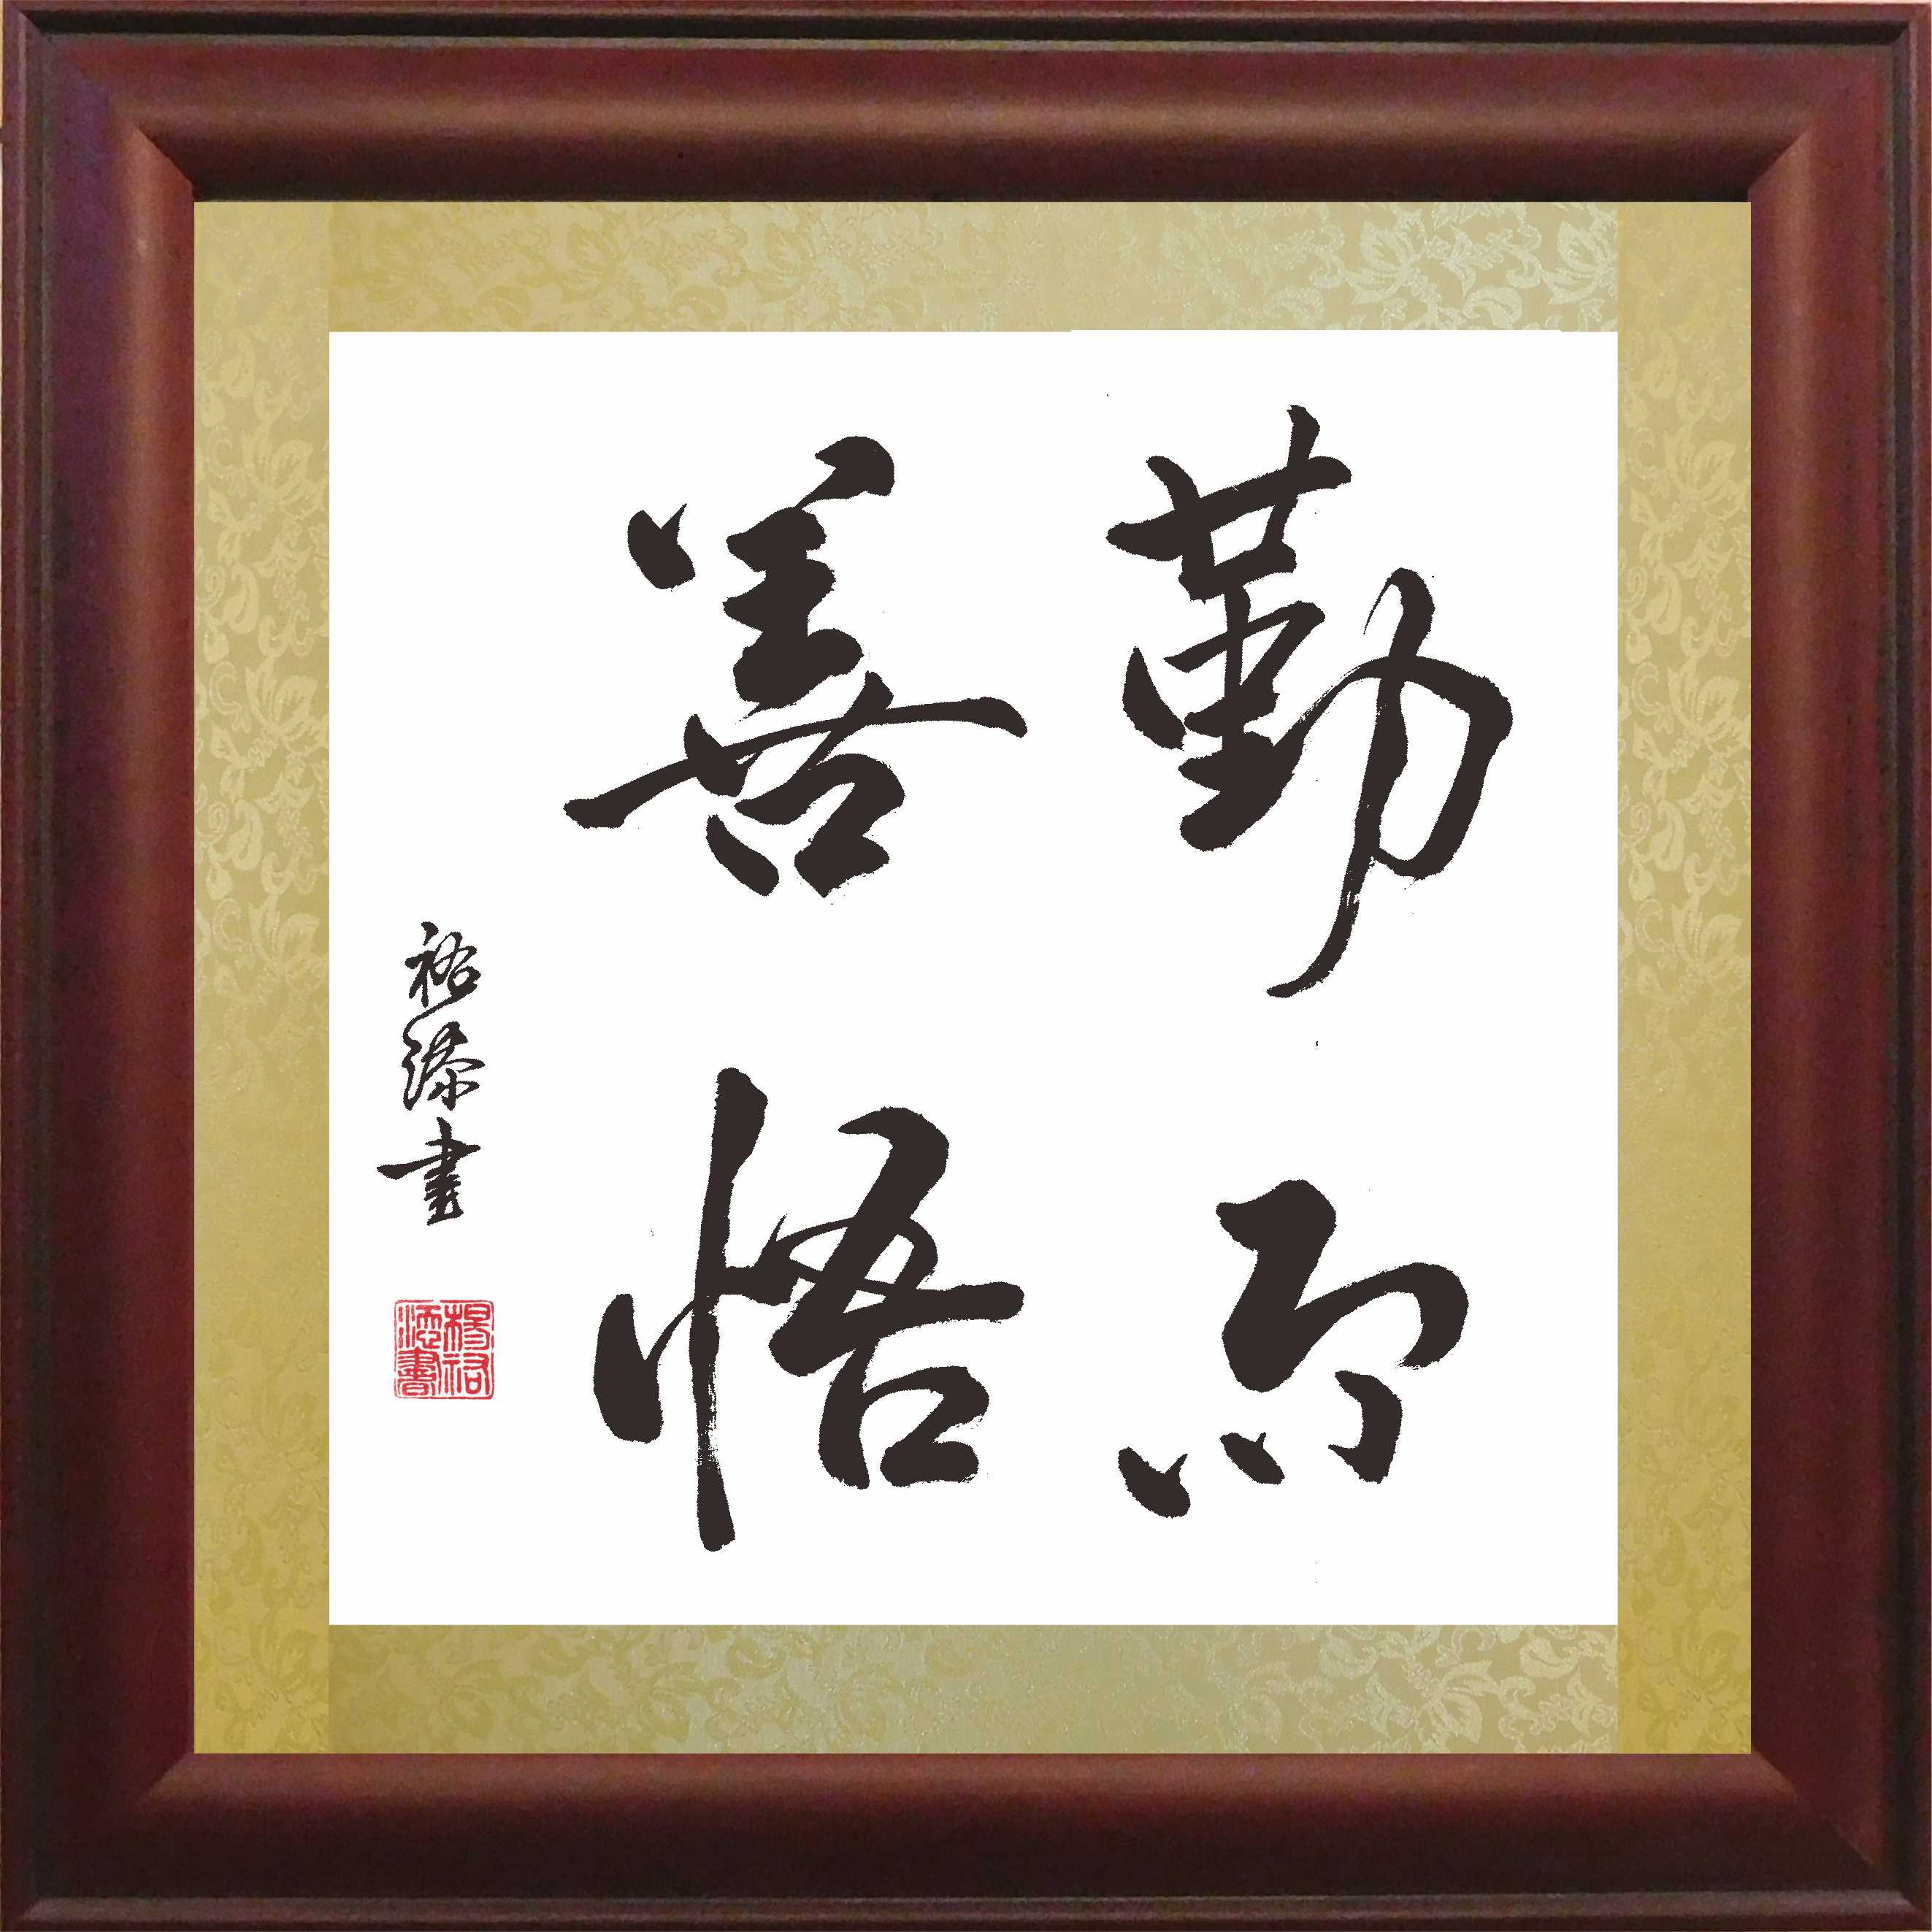 勤思
善悟
裕添書
楊裕
添書